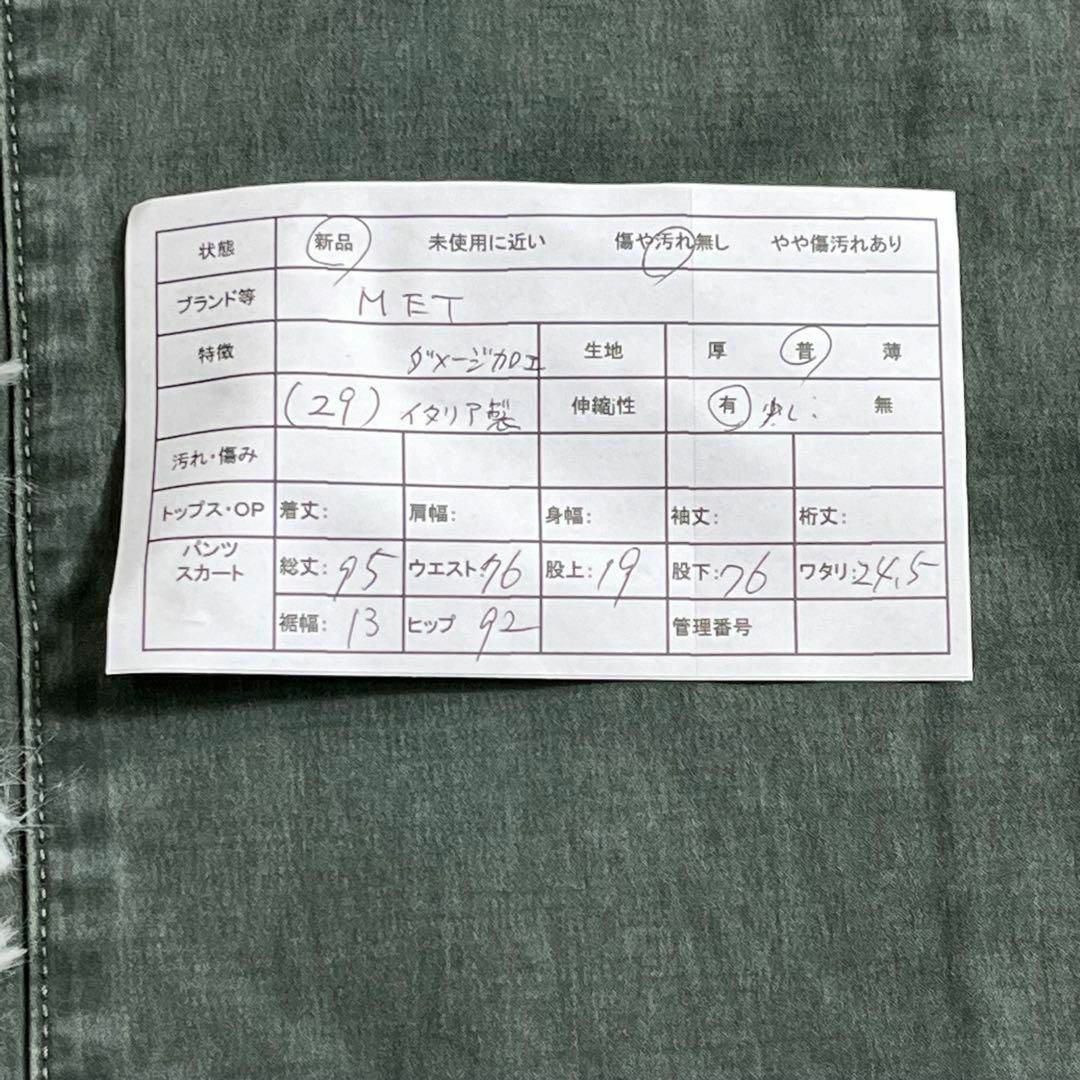 状態 新品 未使用に近い 傷や汚れ無し やや傷汚れあり
ブランド等 MET
特徴 ダメージ加工 生地 厚 普 薄
(29) イタリア製 伸縮性 有 少し: 無
汚れ・傷み
トップス・OP 着丈: 肩幅: 身幅: 袖丈: 桁丈:
パンツ
スカート 総丈: 95 ウエスト: 76 股上: 19 股下: 76 ワタリ: 24.5
裾幅: 13 ヒップ 92 管理番号